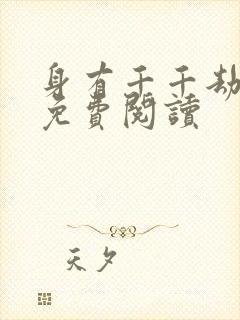 身有千千劫
免費閱讀
天夕